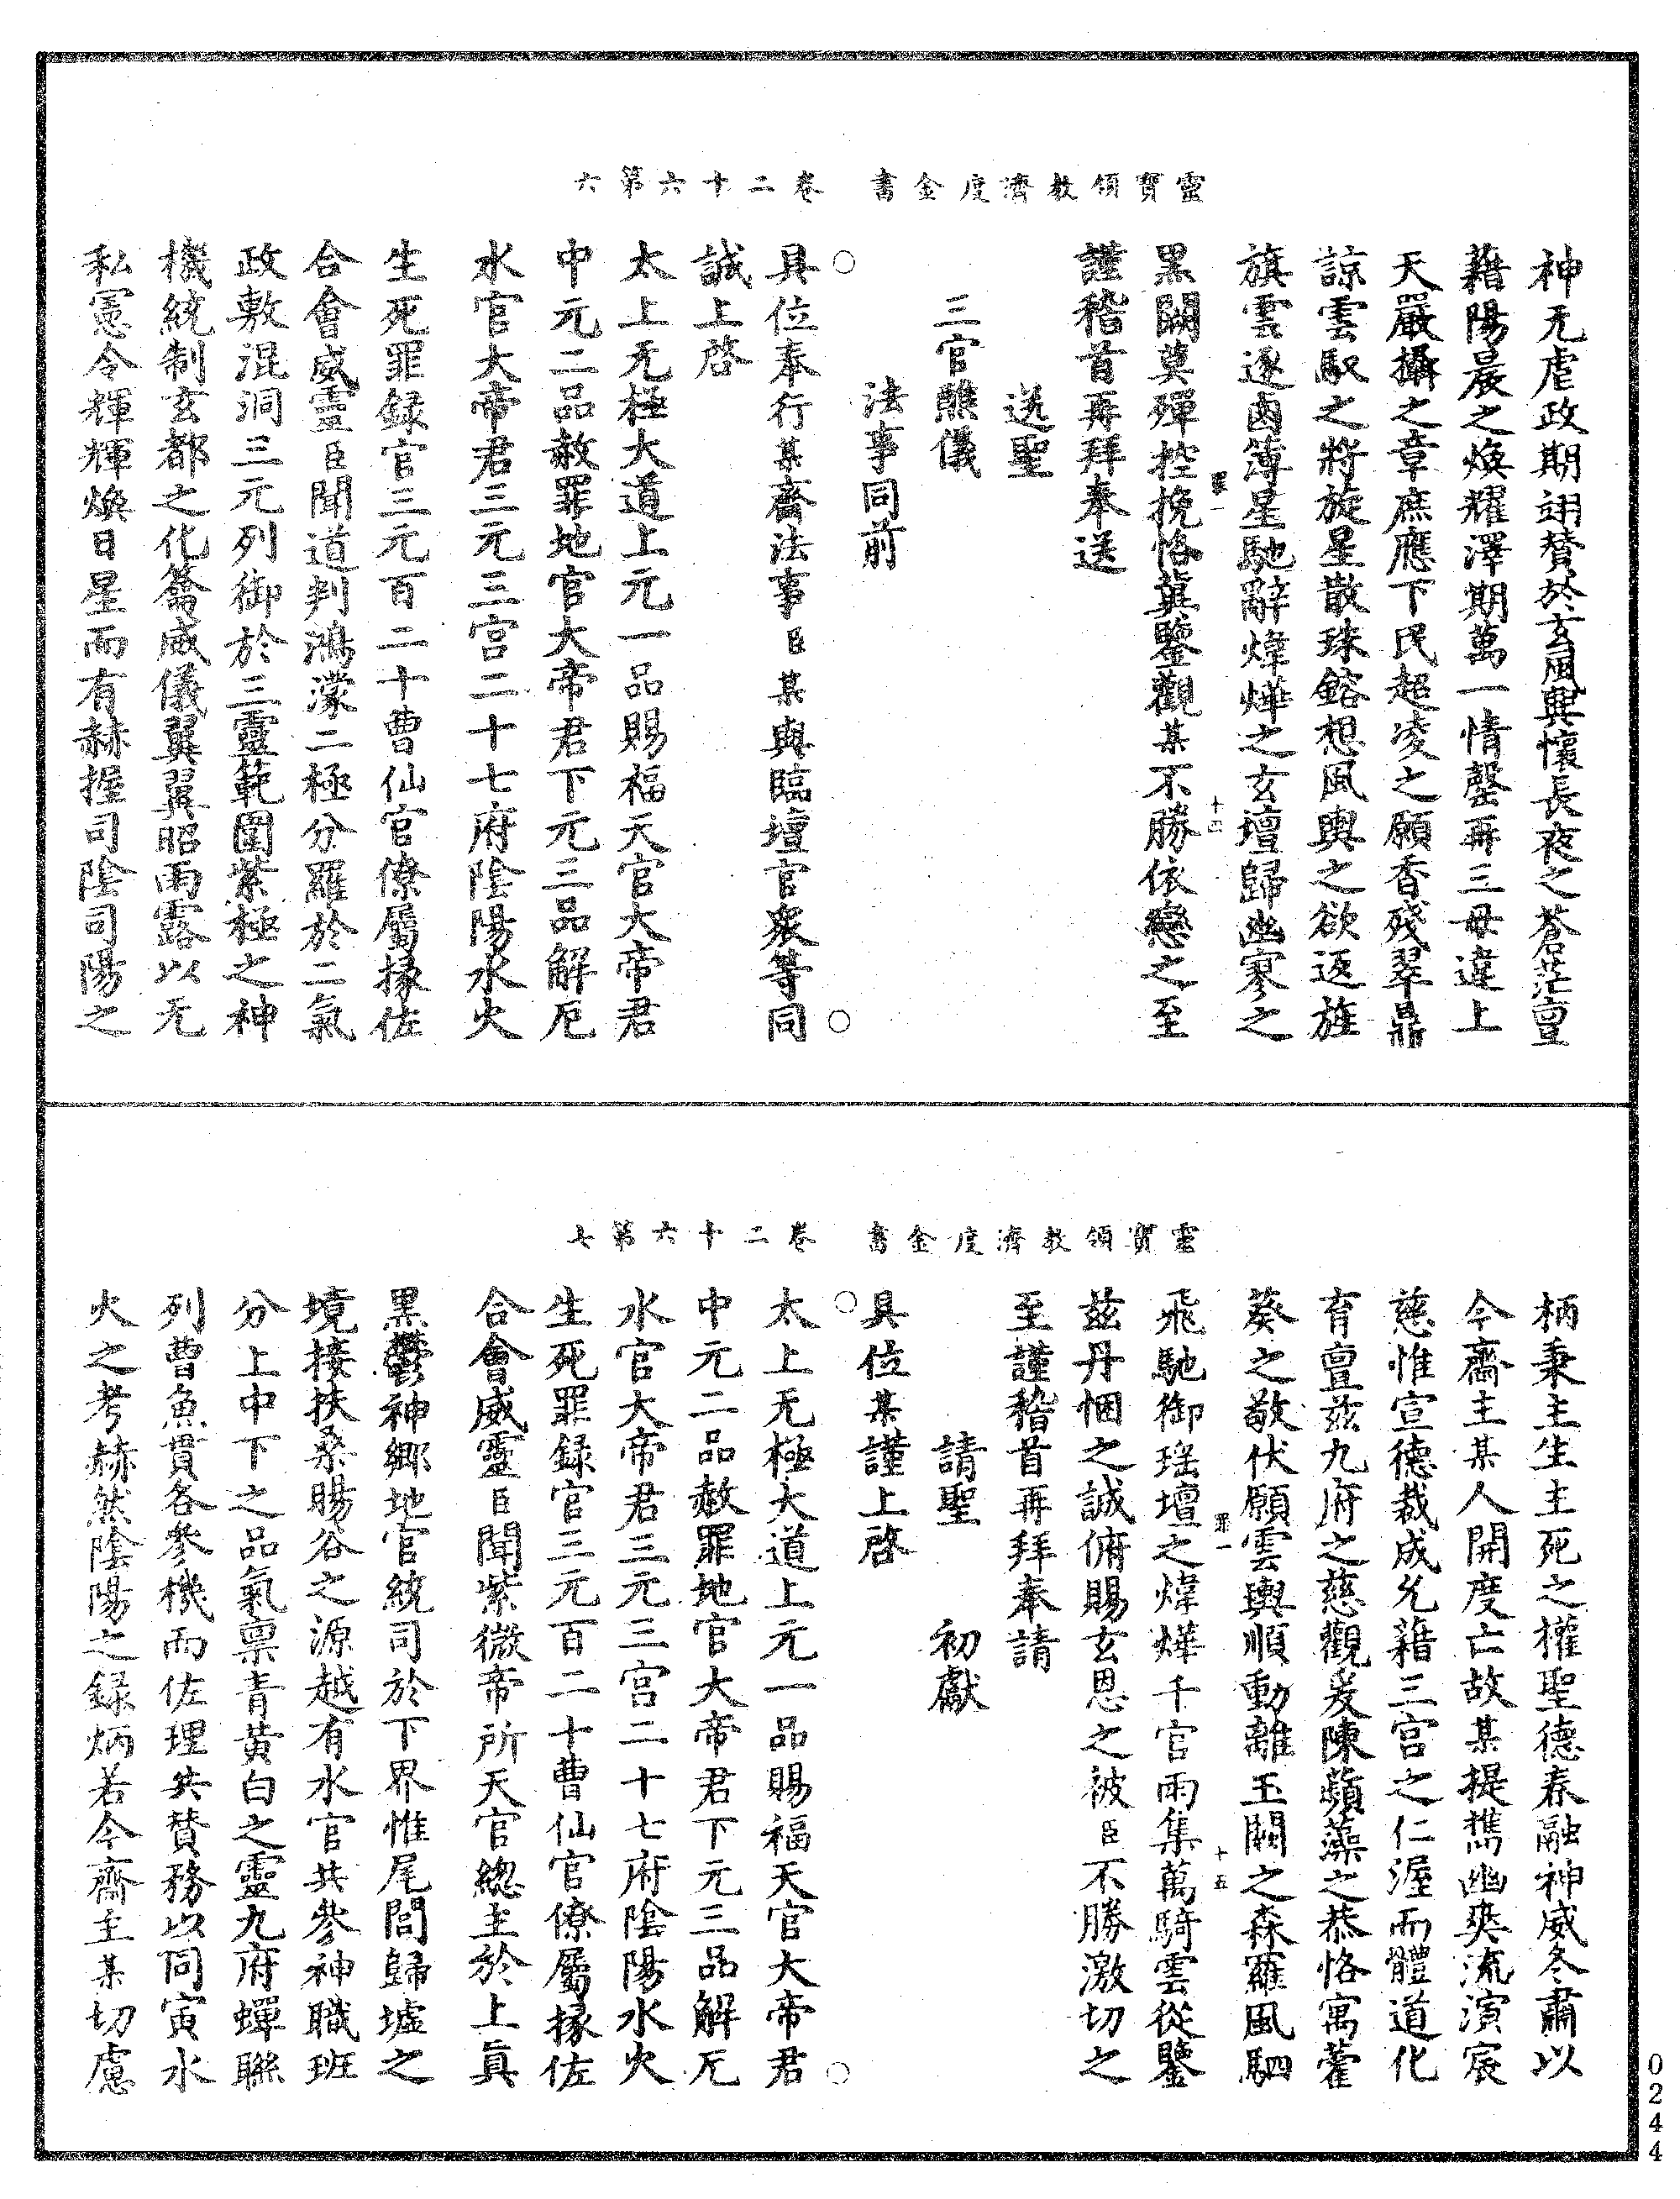 靈寶領教濟度金書　卷二十六第六
神无虐政期翊賛於玄風興懷長夜之蒼茫亶
藉陽晨之煥耀澤期萬一情罄再三毋違上
天嚴攝之章庶應下民超凌之願香殘翠鼎
諒雲馭之將旋星散珠鎔想風輿之欲返旌
旗雲逐鹵簿星馳辭煒燁之玄壇歸幽寥之
黑闕莫殫控挽恪冀鑒觀某不勝依戀之至
謹稽首再拜奉送
送聖
三官醮儀
法事同前
具位奉行某齋法事臣某與臨壇官衆等同
誠上啓
太上无極大道上元一品賜福天官大帝君
中元二品赦罪地官大帝君下元三品解厄
水官大帝君三元三宫二十七府陰陽水火
生死罪録官三元百二十曹仙官僚屬掾佐
合會威靈臣聞道判鴻濛二極分羅於二氣
政敷混洞三元列御於三靈範圍紫極之神
機統制玄都之化籥威儀翼翼昭雨露以无
私憲令輝輝煥日星而有赫握司陰司陽之
十四
靈寶領教濟度金書　卷二十六第七
柄秉主生主死之權聖德春融神威冬肅以
今齋主某人開度亡故某提攜幽爽流演宸
慈惟宣德裁成允藉三宫之仁渥而體道化
育亶兹九府之慈觀爰陳蘋藻之恭恪寓藿
葵之敬伏願雲輿順動離玉闕之森羅風駟
飛馳御瑶壇之煒燁千官雨集萬騎雲從鑒
兹丹悃之誠俯賜玄恩之被臣不勝激切之
至謹稽首再拜奉請
請聖　初獻
具位某謹上啓
太上无極大道上元一品賜福天官大帝君
中元二品赦罪地官大帝君下元三品解厄
水官大帝君三元三宫二十七府陰陽水火
生死罪録官三元百二十曹仙官僚屬掾佐
合會威靈臣聞紫微帝所天官總主於上真
黑鬱神鄉地官統司於下界惟尾閭歸墟之
境接扶桑暘谷之源越有水官共參神職班
分上中下之品氣禀青黄白之靈九府蟬聯
列曹魚貫各參機而佐理共賛務以同寅水
火之考赫然陰陽之録炳若今齋主某切慮
十五
0244